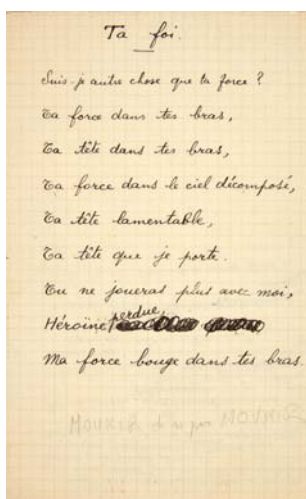 Ta foi.
Suis-je autre chose que ta force ?
Ta force dans tes bras,
Ta tête dans tes bras,
Ta force dans le ciel décomposé,
Ta tête lamentable,
Ta tête que je porte.
Tu ne joueras plus avec moi,
Héroïne perdue,
Ma force bouge dans tes bras.
MOURIR de ne pas MOURIR